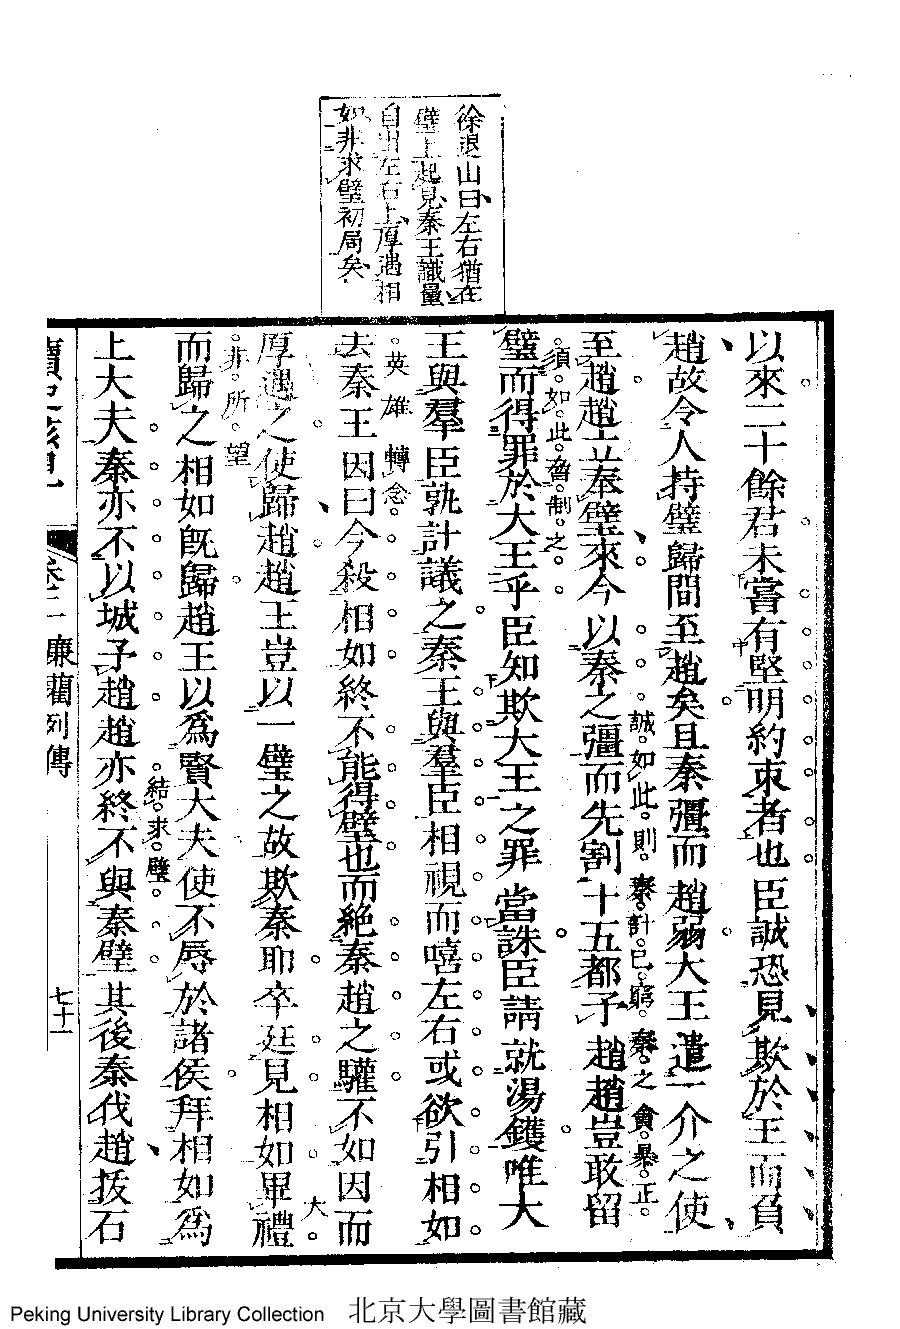 徐退山曰左右猶在
璧上起見秦王識量
自出左右上厚遇相
如非求璧初局矣
以來二十餘君未嘗有堅明約束者也臣誠恐見欺於王而負
趙故令人持璧歸間至趙矣且秦彊而趙弱大王遣一介之使
誠如此則秦計已窮秦之貪暴正
至趙趙立奉璧來今以秦之彊而先割十五都予趙趙豈敢留
須如此
制之
璧而得罪於大王乎臣知欺大王之罪當誅臣請就湯鑊唯大
王與羣臣孰計議之秦王與羣臣相視而嘻左右或欲引相如
英雄轉念
去秦王因曰今殺相如終不能得璧也而絶秦趙之驩不如因而
大
厚遇之使歸趙趙王豈以一璧之故欺秦耶卒廷見相如畢禮
非所望
而歸之相如旣歸趙王以爲賢大夫使不辱於諸侯拜相如爲
結求璧
上大夫秦亦不以城予趙趙亦終不與秦璧其後秦伐趙拔石
廉藺列傳
七十一
Peking University Library Collection 北京大學圖書館藏